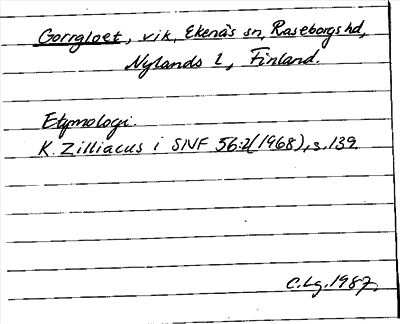 Gorrgloet, vik, Ekenäs sn, Raseborgs hd,
Nylands l, Finland.
Etymologi.
K. Zilliacus i SNF 56:2(1968), s. 139.
C.Lg. 1987.